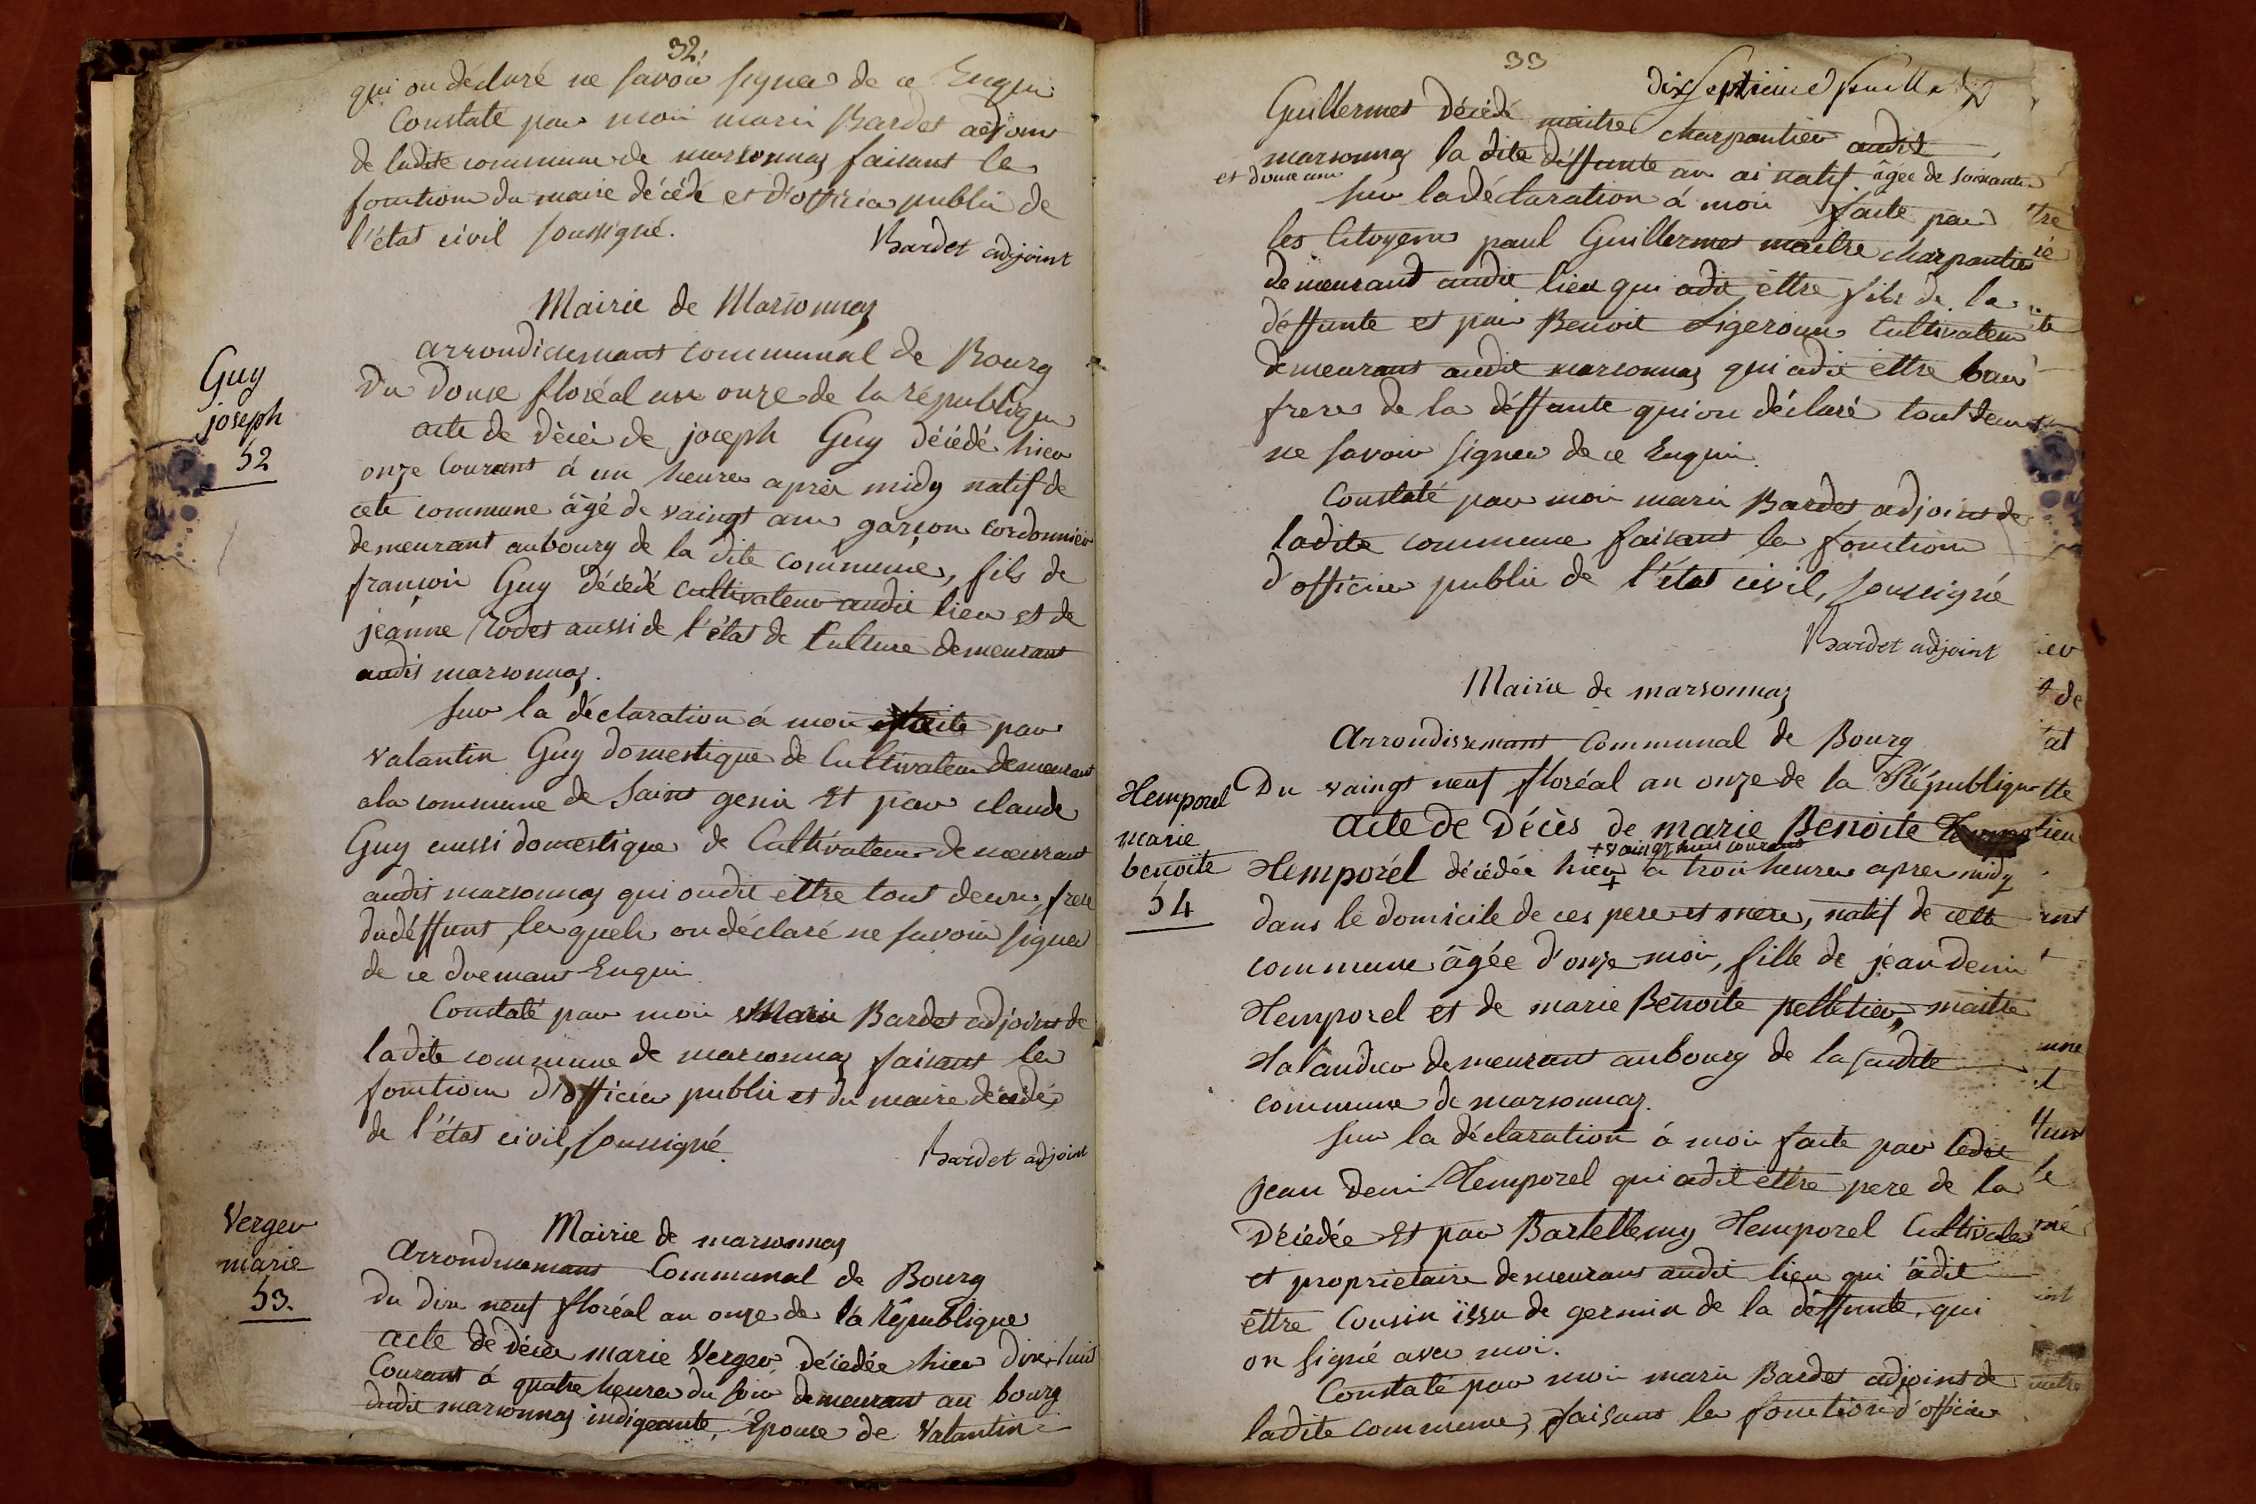 32.
qui on déclaré ne savoir signer de ce Enqui
Constaté par moi marin Bardet adjoint
de ladite commune de marsonnas faisant les
fonctions du maire décédé et d'officier public de
l'état civil soussigné.
Bardet adjoint
Mairie de Marsonnas
arrondissemant communal de Bourg
Guy
joseph
52
Du douse floréal an onze de la république
acte de décès de joseph Guy décédé hier
onze Courant à un heures après midy natif de
cete commune âgé de vaingt ans garçon cordonnier
demeurant aubourg de la dite commune, fils de
françois Guy décédé cultivateur audit lieu et de
jeanne Rodet aussi de l'état de Culture demeurant
audit marsonnas.
Sur la déclaration à moi faite par
valantin Guy domestique de Cultivateur demeurant
a la commune de Saint genis Et par claude
Guy aussi domestique de Cultivateur demeurant
audit marsonnas qui ondit ettre tout deux frere
dudéffunt, les quels on déclaré ne savoir signer
de ce Enqui
Constaté par moi Marin Bardet adjoint de
ladite commune de marsonnas faisant les
fonctions d'officier public et du maire décédé,
de l'état civil, soussigné.
Bardet adjoint
Verger
marie
53.
Mairie de marsonnas
Arrondissemant Communal de Bourg
du dix neuf floréal an onze de la République
acte de décès marie Verger, décédée hier dix huit
Courant à quatre heures du soir demeurant au bourg
dudit marsonnas indigeante, Epouse de Valantin
33
dix septieme feuillet
Guillermet décédé maitre charpantier audit
marsonnas la dite déffunte an ai natif âgée de soixante
et douse ans
Sur la déclaration à moi faite par
les Citoyens paul Guillermet maitre charpantier
demeurant audit lieu qui adit ettre fils de la
déffunte et par Benoit Ligeroun Cultivateur
demeurant audit marsonnas qui adit ettre bau
frere de la déffunte qui on déclaré tout deux
ne savoir signer de ce Enqui.
Constaté par moi marin Bardet adjoint de
ladite commune faisant les fonctions
d'officier public de l'état civil, soussigné
Bardet adjoint
Mairie de marsonnas
Arrondissemant Communal de Bourg
Hemporel
marie
benoite
54
Du vaingt neuf floréal an onze de la République
acte de Décès de marie Benoite
+ vaingt huit courant
Hemporel décédée hier + a trois heures apres midy
dans le domicile de ces pere et mere, natif de cette
commune âgée d'onze mois, fille de jean denis
Hemporel et de marie Benoite pelletier, maitre
Halandier demeurant aubourg de la sudite
commune de marsonnas.
Sur la déclaration à moi faite par ledit
jean denis Hemporel qui adit ettre pere de la
Décédée Et par Bartellemy Hemporel Cultivater
et proprietaire demeurant audit lieu qui adit
ettre Cousin issu de germin de la déffunte, qui
on signé avec moi.
Constaté par moi marin Bardet adjoint de
ladite commune, faisant les fonctions d'officier